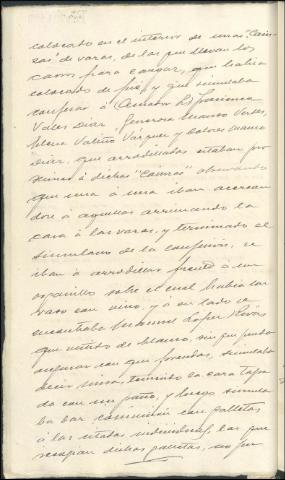 colocado en el interior de unas "Cain-
zas" de varas, de las que llevan los
carros para cargar, que habia
colocados de pié, y que simulaba
confesar á
Valles Diez, Generosa Blanco Valles,
Elena Valiño Vázquez y Dolores
Diez, que arrodilladas estaban pro
ximas á dichas "Cainzas" observando
que una á una iban acercan
dose á aquellas arrimando la
cara á las varas, y terminado el
simulacro de la confesión, se
iban á arrodillar frente á un
organillo sobre el cual habia un
vaso con vino, y á su lado se
encontraba Manuel Lopez Rivas
que vestido de blanco, sin que pueda
asegurar con que prendas, simulaba
decir misa, teniendo la cara tapa
da con un paño, y luego simula
ba dar comunión con galletas
á las citadas individuas, las que
recogian dichas galletas, no pu